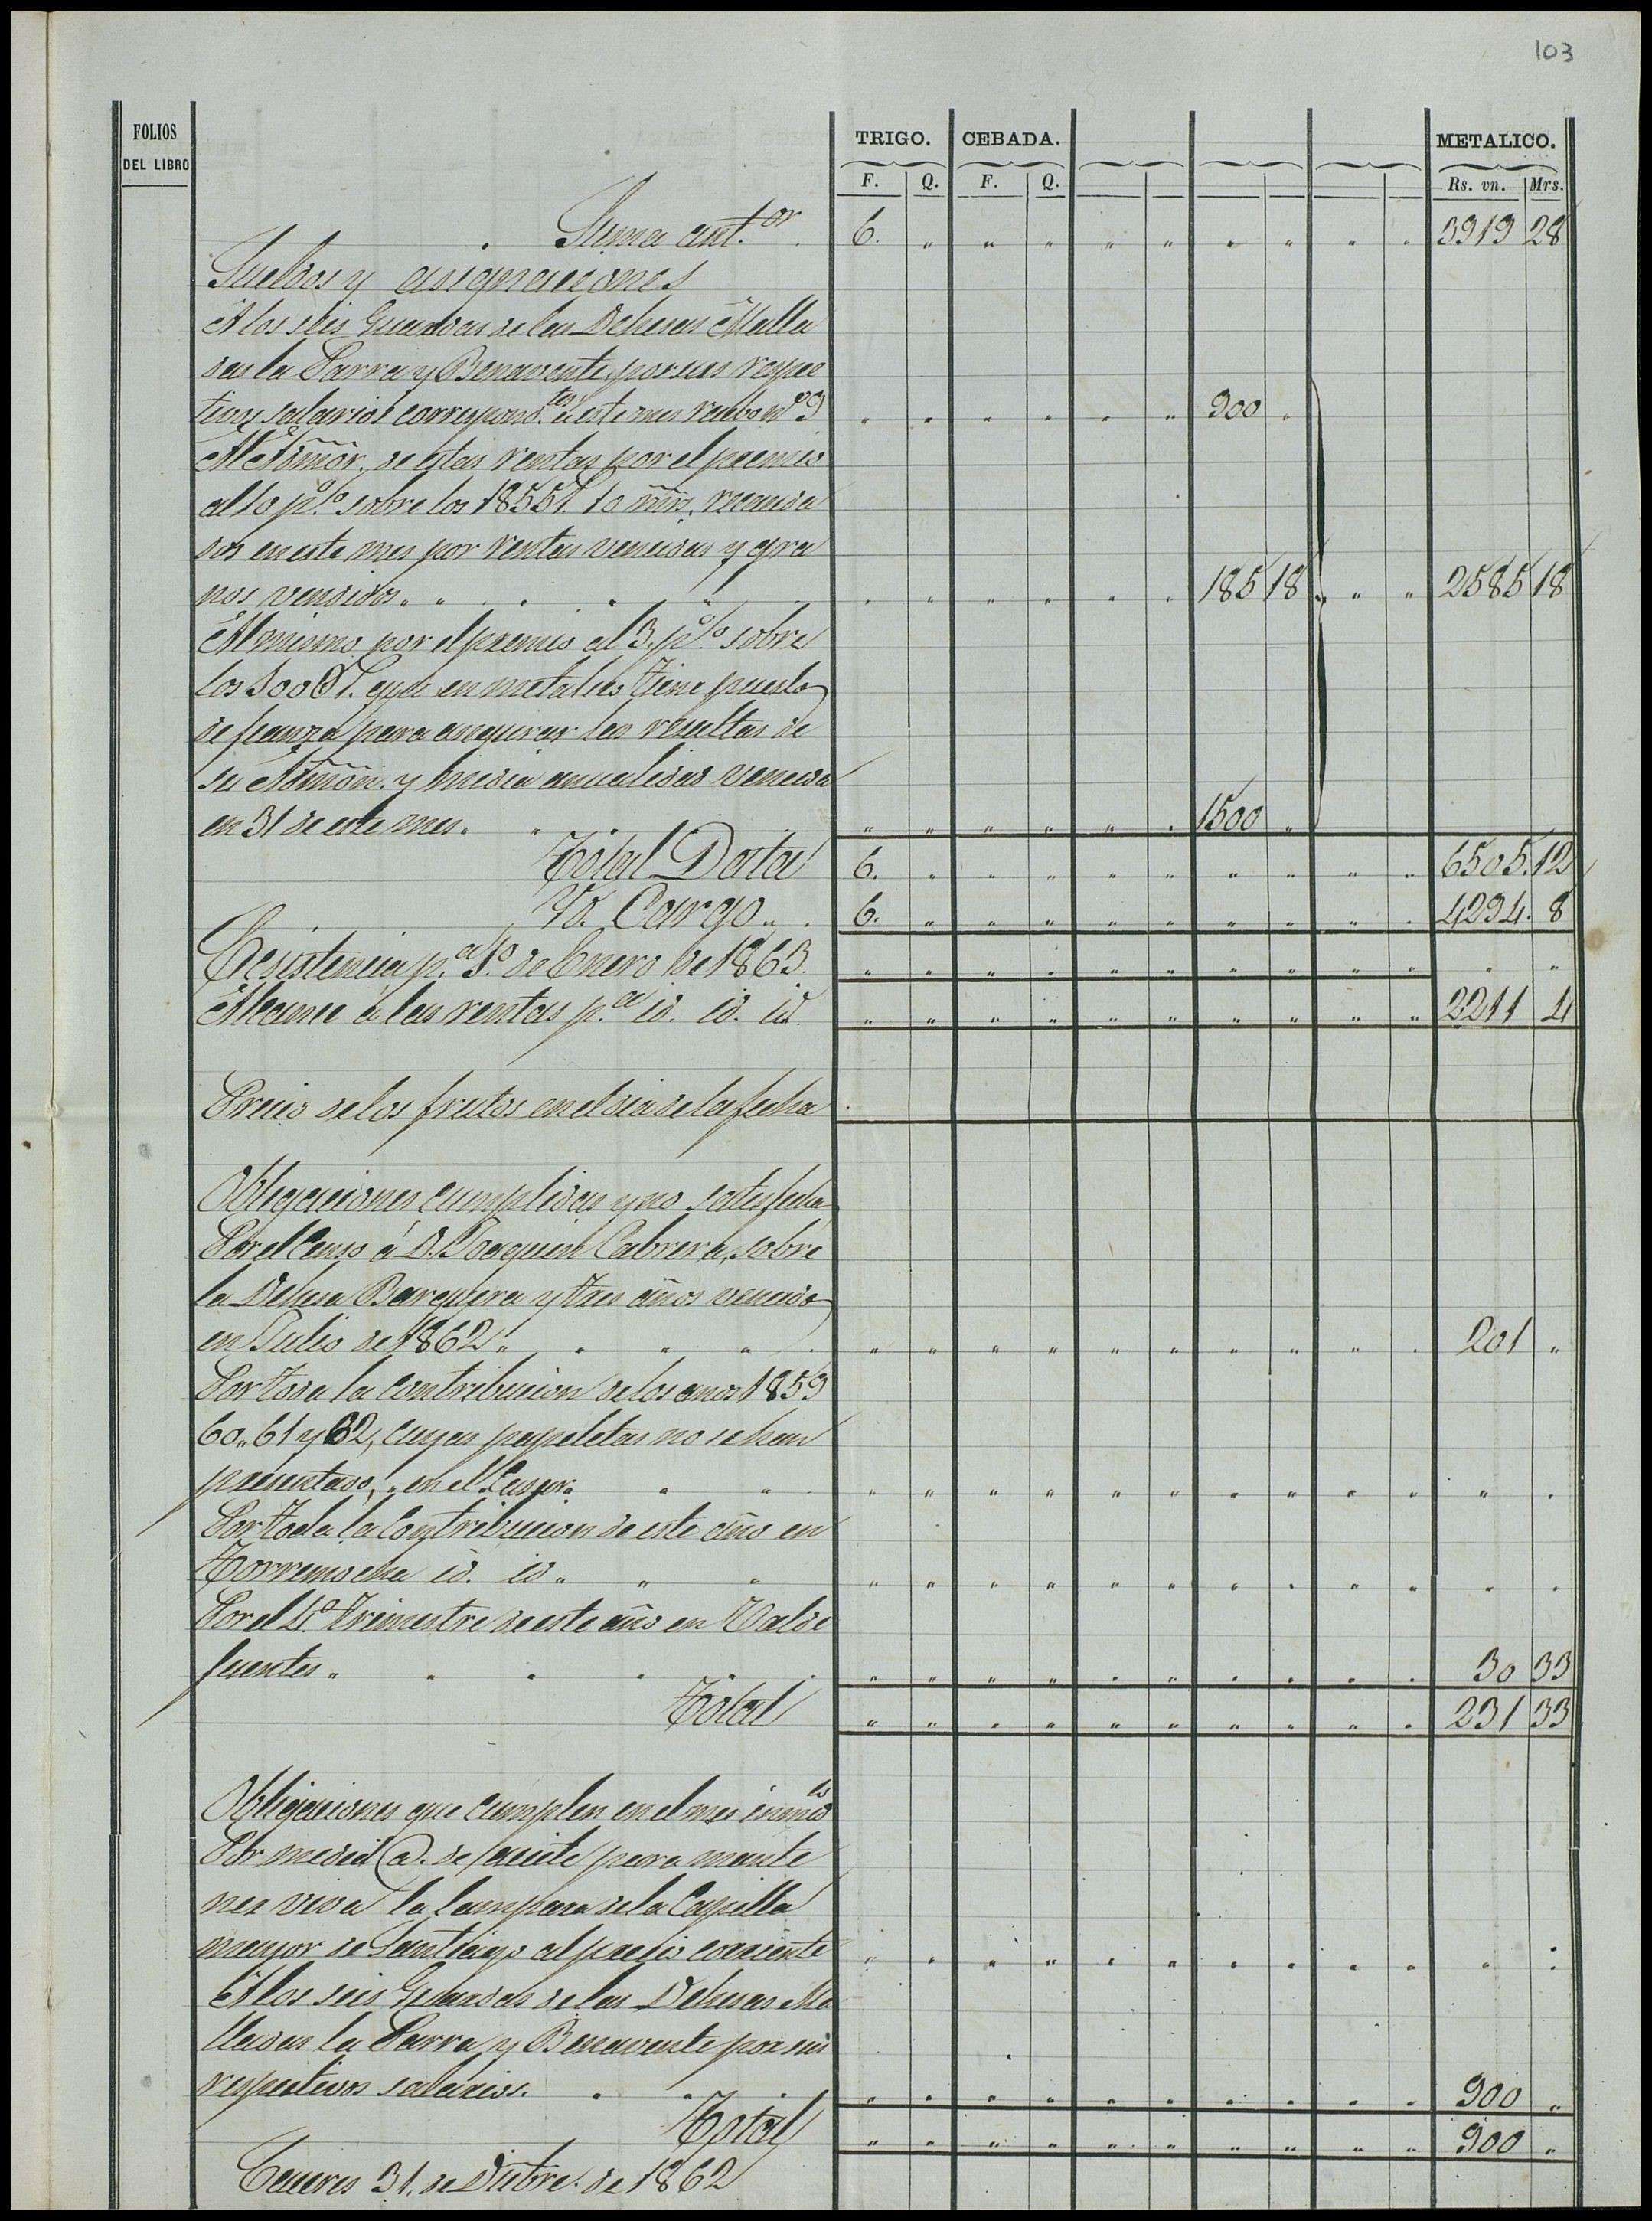 103
FOLIOS
DEL LIBRO
TRIGO. CEBADA. METALICO.
F. Q. F. Q. Rs. vn. Mrs.
Suma ant.or 6. " " " " " " " " " 3919 28
Sueldos y asignaciones
A los seis Guardas de las Dehesas Malla
das la Parra y Benavente, por sus respec
tivos salarios correspond.tes a este mes recibo nº 9 " " " " " " 900 "
Al Admōr. de estas rentas por el premio
al 10 p.% sobre los 1855 r. 10 mrs. recauda
dos en este mes por rentas vencidas y gra
nos vendidos " " " " " " " 185 18 " " " 2585 18
Al mismo por el premio al 3. p.% sobre
los que en metalico tiene puesto
de fianza para asegurar las resultas de
su Admōn. y media anualidad vencida
en 31 de este mes. " " " " " " 1500 "
Total Data 6. " " " " " " " " " 6505. 12
Yd. Cargo 6. " " " " " " " " " 4294. 8
Existencia p.a 1.o de Enero de 1863. " " " " " " " " " " " "
Alcance á las rentas p.a id. id. id. " " " " " " " " " " 2211 4
Precio de los frutos en el dia de la fecha
Obligaciones cumplidas y no satisfechas
Por el Censo á D. Joaquin Cabrera, sobre
la Dehesa Barquera y tres años vencidos
en Julio de 1862 " " " " " " " " " " 201 "
Por toda la contribucion de los años 1859
60. 61 y 62, cuyas papeletas no se han
presentado, en el " " " " " " " " " " " "
Por toda la Contribucion de este año en
Torremocha id. id. " " " " " " " " " " " "
Por el 4.o Trimestre de este año en Valde
fuentes " " " " " " " " " " 30 33
Total " " " " " " " " " " 231 33
Obligaciones que cumplen en el mes
Por media @. de aceite para mante
ner viva la lampara de la Capilla
mayor de Santiago al precio corriente " " " " " " " " " " " "
A los seis Guardas de las Dehesas Ma
lladas la Parra y Benavente por sus
respectivos salarios. " " " " " " " " " " 900 "
Total " " " " " " " " " " 900 "
Caceres 31. de Dicbre. de 1862